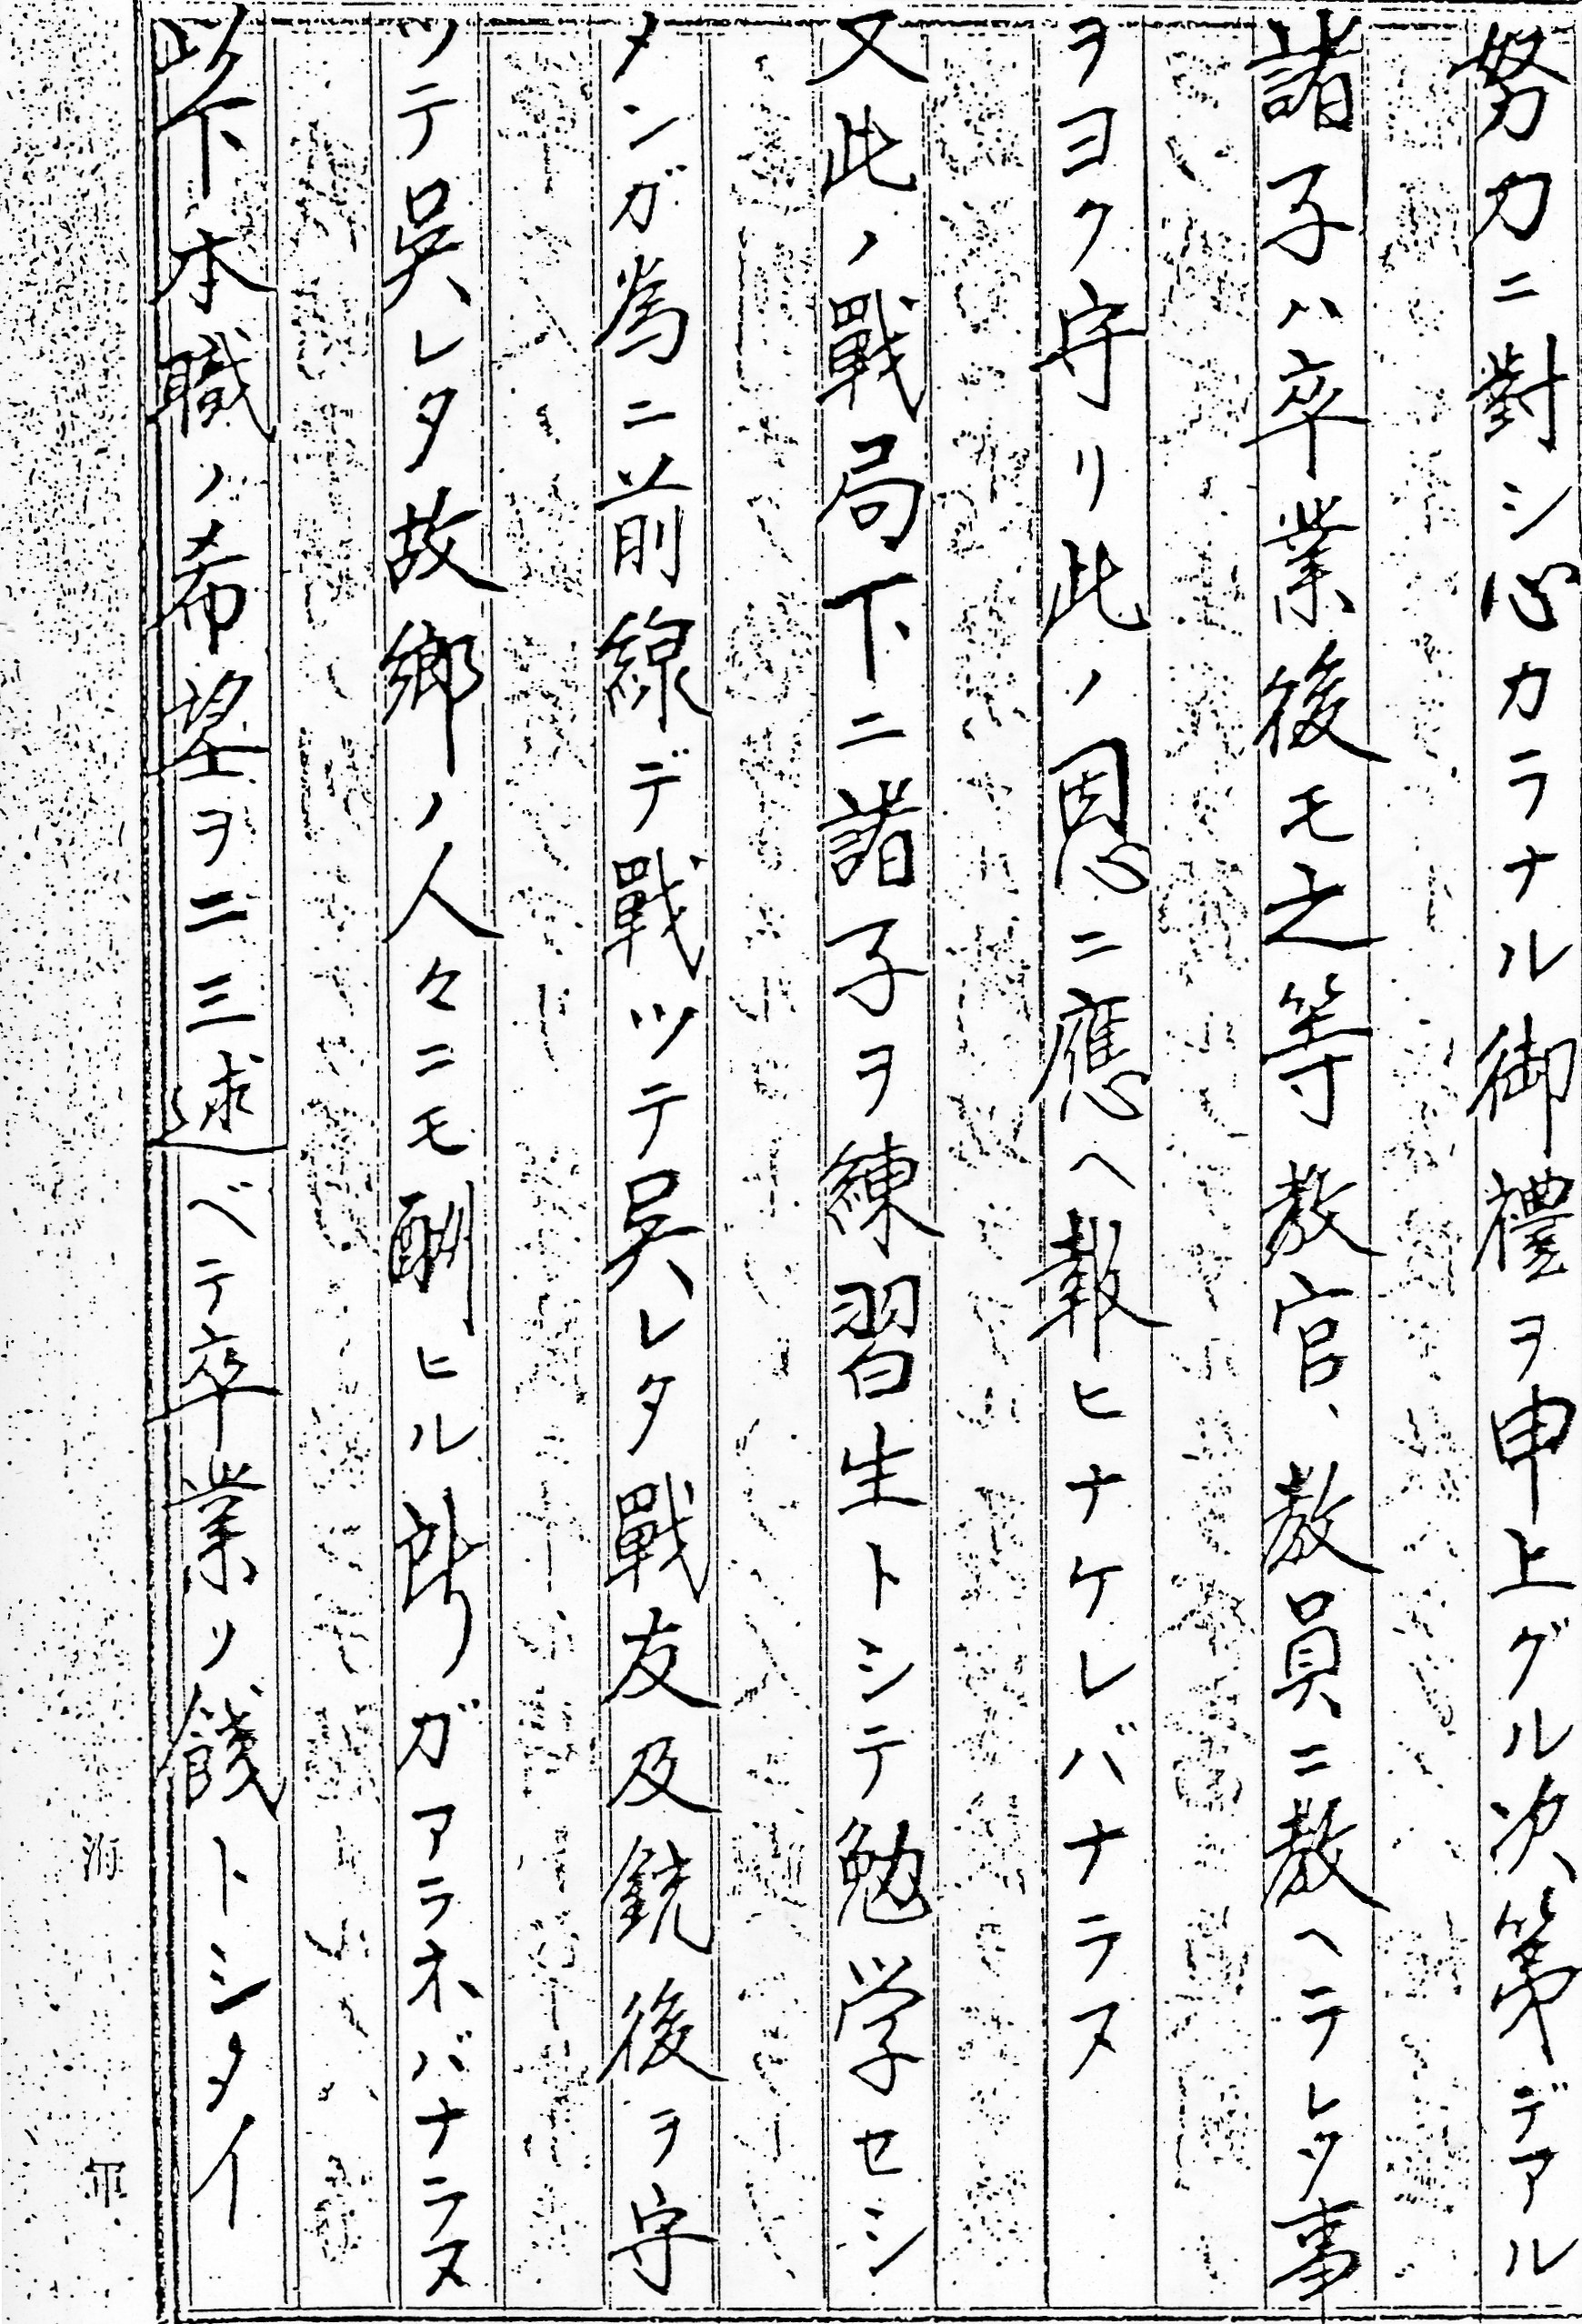 努力ニ對シ心カラナル御禮ヲ申上グル次第デアル
諸子ハ卒業後モ之等教官、教員ニ教ヘラレタ事
ヲヨク守リ此ノ恩ニ應ヘ報ヒナケレバナラヌ
又此ノ戰局下ニ諸子ヲ練習生トシテ勉学セシ
メンガ為ニ前線デ戰ツテ呉レタ戰友及銃後ヲ守
ツテ呉レタ故郷ノ人々ニモ酬ヒル所ガアラネバナラヌ
以下本職ノ希望ヲ二三述ベテ卒業ノ餞トシタイ
海軍